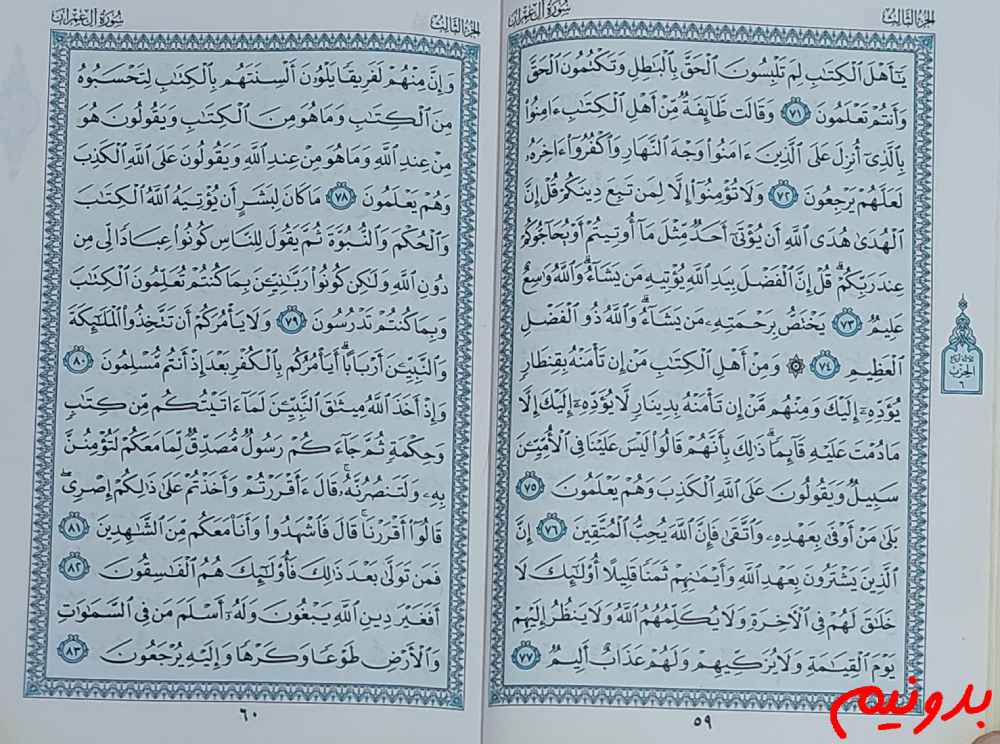 الجزء الثالث
سورة آل عمران
يَـٰٓأَهۡلَ ٱلۡكِتَٰبِ لِمَ تَلۡبِسُونَ ٱلۡحَقَّ بِٱلۡبَٰطِلِ وَتَكۡتُمُونَ ٱلۡحَقَّ
وَأَنتُمۡ تَعۡلَمُونَ ٧١ وَقَالَت طَّآئِفَةٞ مِّنۡ أَهۡلِ ٱلۡكِتَٰبِ ءَامِنُواْ
بِٱلَّذِيٓ أُنزِلَ عَلَى ٱلَّذِينَ ءَامَنُواْ وَجۡهَ ٱلنَّهَارِ وَٱكۡفُرُوٓاْ ءَاخِرَهُۥ
لَعَلَّهُمۡ يَرۡجِعُونَ ٧٢ وَلَا تُؤۡمِنُوٓاْ إِلَّا لِمَن تَبِعَ دِينَكُمۡ قُلۡ إِنَّ
ٱلۡهُدَىٰ هُدَى ٱللَّهِ أَن يُؤۡتَىٰٓ أَحَدٞ مِّثۡلَ مَآ أُوتِيتُمۡ أَوۡ يُحَآجُّوكُمۡ
عِندَ رَبِّكُمۡۗ قُلۡ إِنَّ ٱلۡفَضۡلَ بِيَدِ ٱللَّهِ يُؤۡتِيهِ مَن يَشَآءُۗ وَٱللَّهُ وَٰسِعٌ
عَلِيمٞ ٧٣ يَخۡتَصُّ بِرَحۡمَتِهِۦ مَن يَشَآءُۗ وَٱللَّهُ ذُو ٱلۡفَضۡلِ
ٱلۡعَظِيمِ ٧٤ ۞ وَمِنۡ أَهۡلِ ٱلۡكِتَٰبِ مَنۡ إِن تَأۡمَنۡهُ بِقِنطَارٖ
يُؤَدِّهِۦٓ إِلَيۡكَ وَمِنۡهُم مَّنۡ إِن تَأۡمَنۡهُ بِدِينَارٖ لَّا يُؤَدِّهِۦٓ إِلَيۡكَ إِلَّا
مَا دُمۡتَ عَلَيۡهِ قَآئِمٗاۗ ذَٰلِكَ بِأَنَّهُمۡ قَالُواْ لَيۡسَ عَلَيۡنَا فِي ٱلۡأُمِّيِّـۧنَ
سَبِيلٞ وَيَقُولُونَ عَلَى ٱللَّهِ ٱلۡكَذِبَ وَهُمۡ يَعۡلَمُونَ ٧٥
بَلَىٰ مَنۡ أَوۡفَىٰ بِعَهۡدِهِۦ وَٱتَّقَىٰ فَإِنَّ ٱللَّهَ يُحِبُّ ٱلۡمُتَّقِينَ ٧٦ إِنَّ
ٱلَّذِينَ يَشۡتَرُونَ بِعَهۡدِ ٱللَّهِ وَأَيۡمَٰنِهِمۡ ثَمَنٗا قَلِيلًا أُوْلَـٰٓئِكَ لَا
خَلَٰقَ لَهُمۡ فِي ٱلۡأٓخِرَةِ وَلَا يُكَلِّمُهُمُ ٱللَّهُ وَلَا يَنظُرُ إِلَيۡهِمۡ
يَوۡمَ ٱلۡقِيَٰمَةِ وَلَا يُزَكِّيهِمۡ وَلَهُمۡ عَذَابٌ أَلِيمٞ ٧٧
٥٩
ثلاثة أرباع
الحزب
٦
الجزء الثالث
سورة آل عمران
وَإِنَّ مِنۡهُمۡ لَفَرِيقٗا يَلۡوُۥنَ أَلۡسِنَتَهُم بِٱلۡكِتَٰبِ لِتَحۡسَبُوهُ
مِنَ ٱلۡكِتَٰبِ وَمَا هُوَ مِنَ ٱلۡكِتَٰبِ وَيَقُولُونَ هُوَ
مِنۡ عِندِ ٱللَّهِ وَمَا هُوَ مِنۡ عِندِ ٱللَّهِ وَيَقُولُونَ عَلَى ٱللَّهِ ٱلۡكَذِبَ
وَهُمۡ يَعۡلَمُونَ ٧٨ مَا كَانَ لِبَشَرٍ أَن يُؤۡتِيَهُ ٱللَّهُ ٱلۡكِتَٰبَ
وَٱلۡحُكۡمَ وَٱلنُّبُوَّةَ ثُمَّ يَقُولَ لِلنَّاسِ كُونُواْ عِبَادٗا لِّي مِن
دُونِ ٱللَّهِ وَلَٰكِن كُونُواْ رَبَّـٰنِيِّـۧنَ بِمَا كُنتُمۡ تُعَلِّمُونَ ٱلۡكِتَٰبَ
وَبِمَا كُنتُمۡ تَدۡرُسُونَ ٧٩ وَلَا يَأۡمُرَكُمۡ أَن تَتَّخِذُواْ ٱلۡمَلَـٰٓئِكَةَ
وَٱلنَّبِيِّـۧنَ أَرۡبَابًاۗ أَيَأۡمُرُكُم بِٱلۡكُفۡرِ بَعۡدَ إِذۡ أَنتُم مُّسۡلِمُونَ ٨٠
وَإِذۡ أَخَذَ ٱللَّهُ مِيثَٰقَ ٱلنَّبِيِّـۧنَ لَمَآ ءَاتَيۡتُكُم مِّن كِتَٰبٖ
وَحِكۡمَةٖ ثُمَّ جَآءَكُمۡ رَسُولٞ مُّصَدِّقٞ لِّمَا مَعَكُمۡ لَتُؤۡمِنُنَّ
بِهِۦ وَلَتَنصُرُنَّهُۥۚ قَالَ ءَأَقۡرَرۡتُمۡ وَأَخَذۡتُمۡ عَلَىٰ ذَٰلِكُمۡ إِصۡرِيۖ
قَالُوٓاْ أَقۡرَرۡنَاۚ قَالَ فَٱشۡهَدُواْ وَأَنَا۠ مَعَكُم مِّنَ ٱلشَّـٰهِدِينَ ٨١
فَمَن تَوَلَّىٰ بَعۡدَ ذَٰلِكَ فَأُوْلَـٰٓئِكَ هُمُ ٱلۡفَٰسِقُونَ ٨٢
أَفَغَيۡرَ دِينِ ٱللَّهِ يَبۡغُونَ وَلَهُۥٓ أَسۡلَمَ مَن فِي ٱلسَّمَٰوَٰتِ
وَٱلۡأَرۡضِ طَوۡعٗا وَكَرۡهٗا وَإِلَيۡهِ يُرۡجَعُونَ ٨٣
٦٠
بدونیم